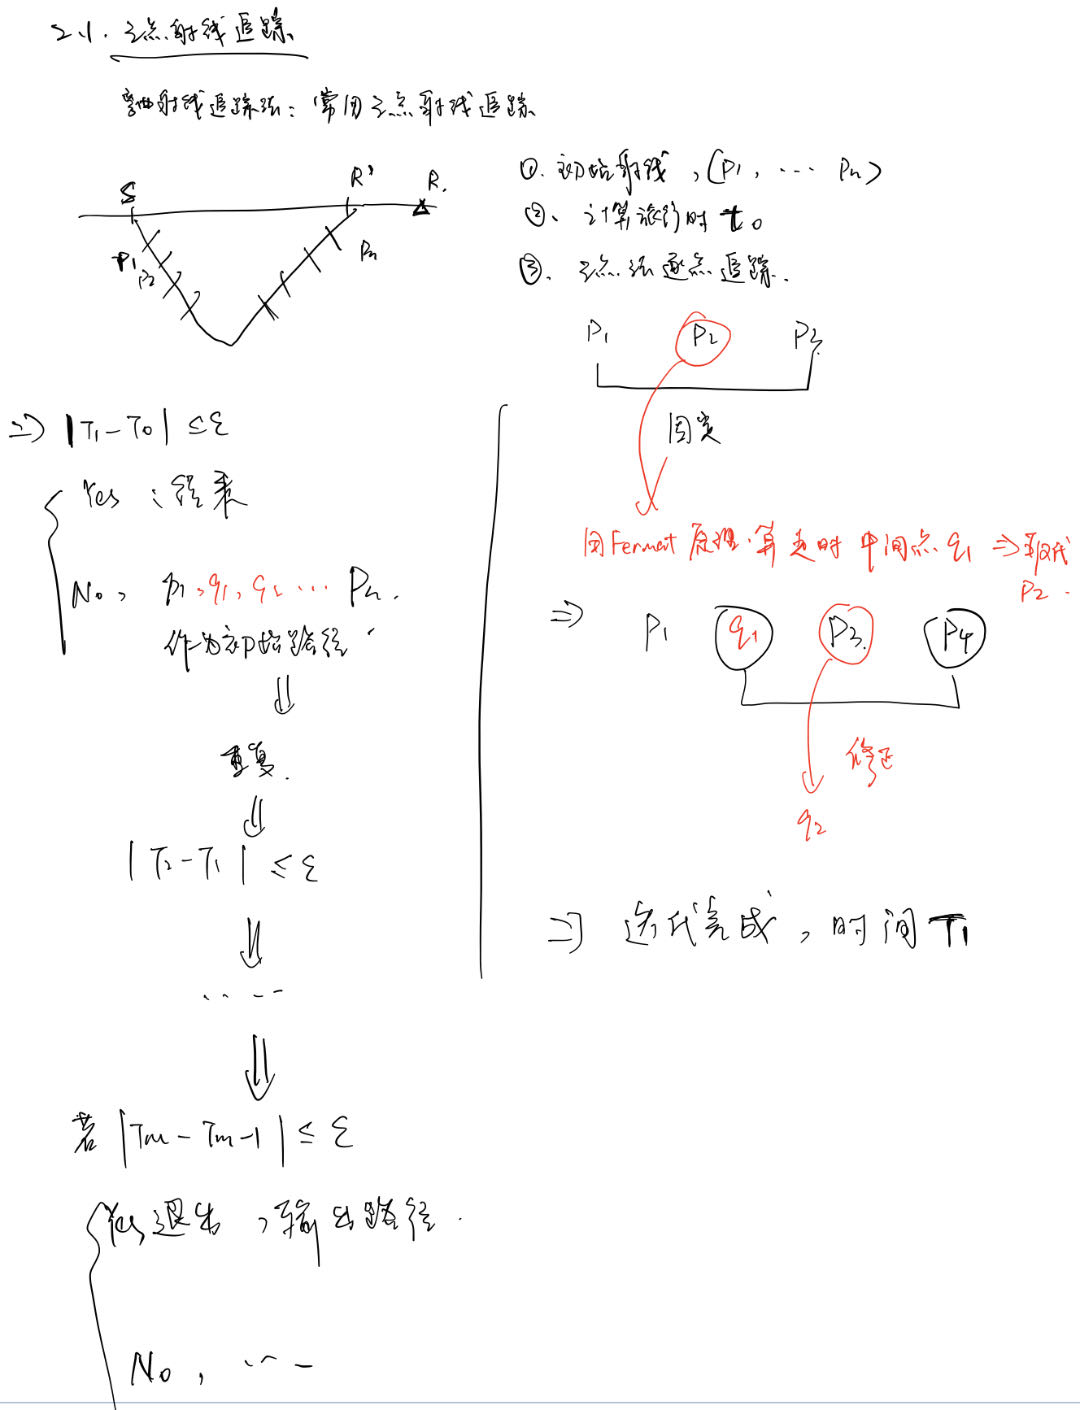 2.1. 三点射线追踪
弯曲射线追踪法：常用三点射线追踪
S R' R.
P1 P2 Pn
①. 初始射线，(P1, ... Pn)
②、计算旅行时 t0
③、三点法逐点追踪.
P1 P2 P3
固定
用Fermat原理.算走时中间点q1 ⇒取代
P2.
⇒ P1 q1 P3. P4
修正
q2
⇒ 迭代完成，时间T1
⇒ |T1-T0| ≤ε
Yes：结束
No， P1,q1,q2 ... Pn.
作为初始路径
⇓
重复.
⇓
|T2-T1| ≤ε
⇓
......
⇓
若 |Tm-Tm-1| ≤ ε
Yes 退出，输出路径.
No，...